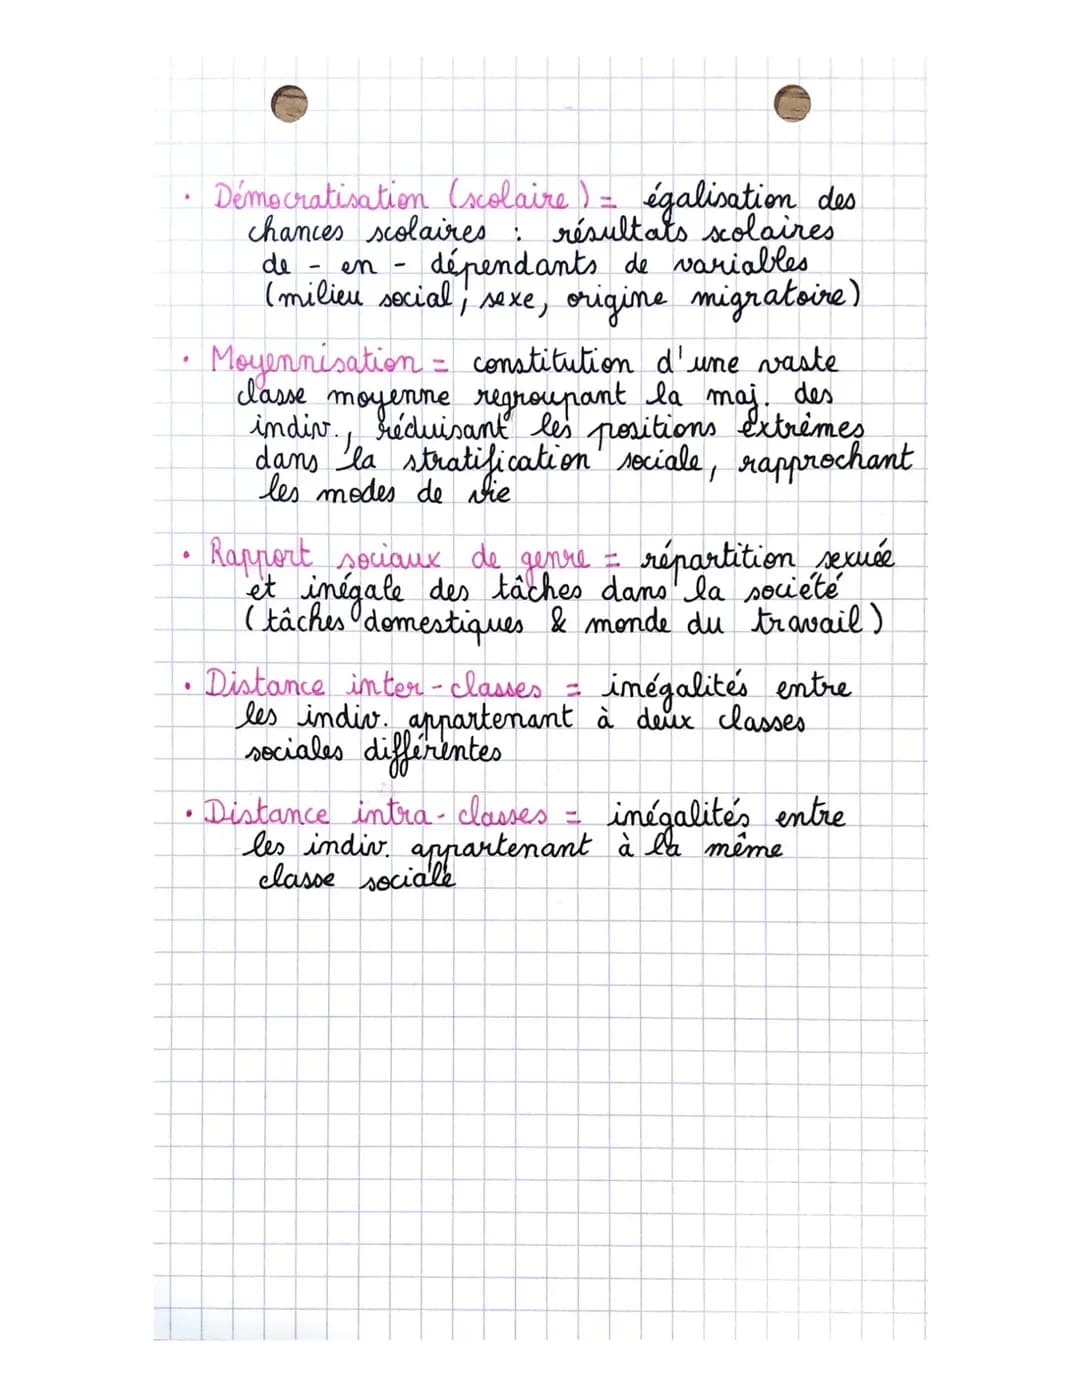 • Démocratisation (scolaire) = égalisation des
chances scolaires : résultats scolaires
de - en - dépendants de variables
(milieu social, sexe, origine migratoire)
• Moyennisation = constitution d'une vaste
classe moyenne regroupant la maj. des
indiv., réduisant les positions extrêmes
dans la stratification sociale, rapprochant
les modes de vie
• Rapport sociaux de genre = répartition sexuée
et inégale des tâches dans la société
(tâches domestiques & monde du travail)
• Distance inter-classes = inégalités entre
les indiv. appartenant à deux classes
sociales différentes
• Distance intra-classes = inégalités entre
les indiv. appartenant à la même
classe sociale